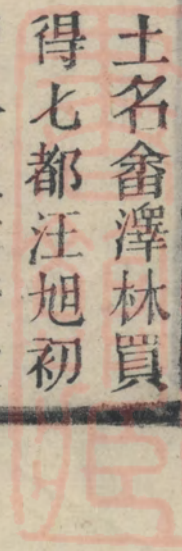 土名畲澤林買
得七都汪旭初